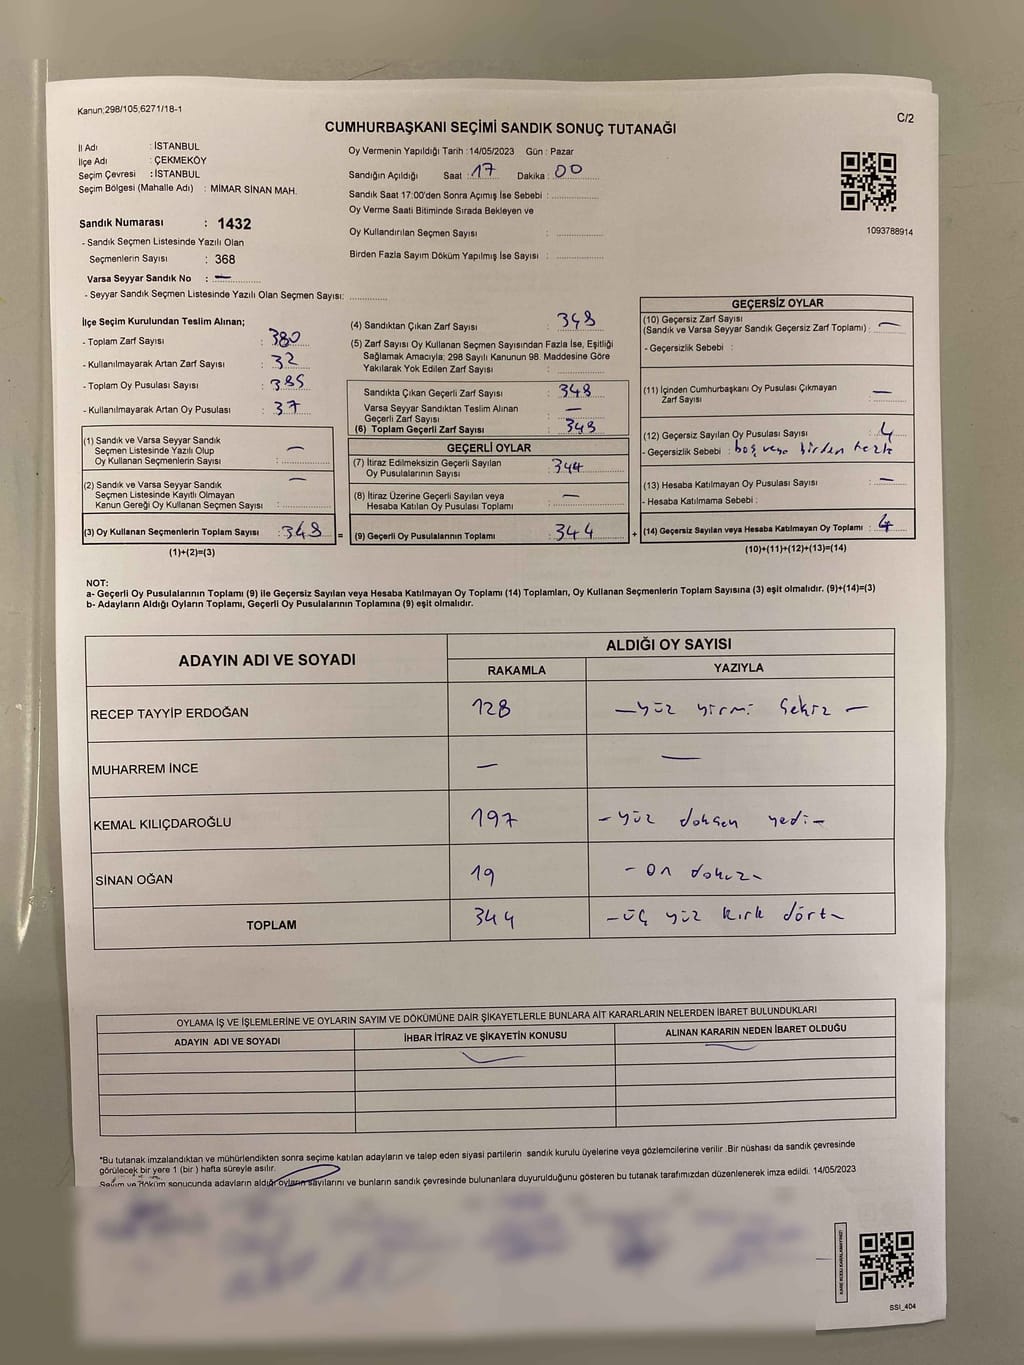 Kanun;298/105,6271/18-1
C/2
CUMHURBAŞKANI SEÇİMİ SANDIK SONUÇ TUTANAĞI
İl Adı : İSTANBUL
İlçe Adı : ÇEKMEKÖY
Seçim Çevresi : İSTANBUL
Seçim Bölgesi (Mahalle Adı) : MİMAR SİNAN MAH.
Sandık Numarası : 1432
- Sandık Seçmen Listesinde Yazılı Olan
Seçmenlerin Sayısı : 368
Varsa Seyyar Sandık No : —
- Seyyar Sandık Seçmen Listesinde Yazılı Olan Seçmen Sayısı: ............
Oy Vermenin Yapıldığı Tarih :14/05/2023 Gün : Pazar
Sandığın Açıldığı Saat : 17 Dakika : 00
Sandık Saat 17:00'den Sonra Açımış İse Sebebi : ...............
Oy Verme Saati Bitiminde Sırada Bekleyen ve
Oy Kullandırılan Seçmen Sayısı : ...............
Birden Fazla Sayım Döküm Yapılmış İse Sayısı : ...............
1093788914
İlçe Seçim Kurulundan Teslim Alınan;
- Toplam Zarf Sayısı : 380
- Kullanılmayarak Artan Zarf Sayısı : 32
- Toplam Oy Pusulası Sayısı : 385
- Kullanılmayarak Artan Oy Pusulası : 37
(1) Sandık ve Varsa Seyyar Sandık
Seçmen Listesinde Yazılı Olup
Oy Kullanan Seçmenlerin Sayısı : —
(2) Sandık ve Varsa Seyyar Sandık
Seçmen Listesinde Kayıtlı Olmayan
Kanun Gereği Oy Kullanan Seçmen Sayısı : —
(3) Oy Kullanan Seçmenlerin Toplam Sayısı : 348
(1)+(2)=(3)
(4) Sandıktan Çıkan Zarf Sayısı : 348
(5) Zarf Sayısı Oy Kullanan Seçmen Sayısından Fazla İse, Eşitliği
Sağlamak Amacıyla; 298 Sayılı Kanunun 98. Maddesine Göre
Yakılarak Yok Edilen Zarf Sayısı : ............
Sandıkta Çıkan Geçerli Zarf Sayısı : 348
Varsa Seyyar Sandıktan Teslim Alınan
Geçerli Zarf Sayısı : —
(6) Toplam Geçerli Zarf Sayısı : 348
GEÇERLİ OYLAR
(7) İtiraz Edilmeksizin Geçerli Sayılan
Oy Pusulasının Sayısı : 344
(8) İtiraz Üzerine Geçerli Sayılan veya
Hesaba Katılan Oy Pusulası Toplamı : —
= (9) Geçerli Oy Pusulalarının Toplamı : 344
GEÇERSİZ OYLAR
(10) Geçersiz Zarf Sayısı
(Sandık ve Varsa Seyyar Sandık Geçersiz Zarf Toplamı) : —
- Geçersizlik Sebebi :
(11) İçinden Cumhurbaşkanı Oy Pusulası Çıkmayan
Zarf Sayısı : —
(12) Geçersiz Sayılan Oy Pusulası Sayısı : 4
- Geçersizlik Sebebi : boş veya birden fazla
(13) Hesaba Katılmayan Oy Pusulası Sayısı : —
- Hesaba Katılmama Sebebi :
+ (14) Geçersiz Sayılan veya Hesaba Katılmayan Oy Toplamı : 4
(10)+(11)+(12)+(13)=(14)
NOT:
a- Geçerli Oy Pusulalarının Toplamı (9) ile Geçersiz Sayılan veya Hesaba Katılmayan Oy Toplamı (14) Toplamları, Oy Kullanan Seçmenlerin Toplam Sayısına (3) eşit olmalıdır. (9)+(14)=(3)
b- Adayların Aldığı Oyların Toplamı, Geçerli Oy Pusulalarının Toplamına (9) eşit olmalıdır.
ADAYIN ADI VE SOYADI
ALDIĞI OY SAYISI
RAKAMLA YAZIYLA
RECEP TAYYİP ERDOĞAN 128 — yüz yirmi sekiz —
MUHARREM İNCE — —
KEMAL KILIÇDAROĞLU 197 - yüz doksan yedi -
SİNAN OĞAN 19 - on dokuz -
TOPLAM 344 - üç yüz kırk dört -
OYLAMA İŞ VE İŞLEMLERİNE VE OYLARIN SAYIM VE DÖKÜMÜNE DAİR ŞİKAYETLERLE BUNLARA AİT KARARLARIN NELERDEN İBARET BULUNDUKLARI
ADAYIN ADI VE SOYADI İHBAR İTİRAZ VE ŞİKAYETİN KONUSU ALINAN KARARIN NEDEN İBARET OLDUĞU
*Bu tutanak imzalandıktan ve mühürlendikten sonra seçime katılan adayların ve talep eden siyasi partilerin sandık kurulu üyelerine veya gözlemcilerine verilir .Bir nüshası da sandık çevresinde
görülecek bir yere 1 (bir ) hafta süreyle asılır.
Seçim ve Döküm sonucunda adayların aldığı oyların sayılarını ve bunların sandık çevresinde bulunanlara duyurulduğunu gösteren bu tutanak tarafımızdan düzenlenerek imza edildi. 14/05/2023
KARE KODU KARALAMAYINIZ!
SSI_404